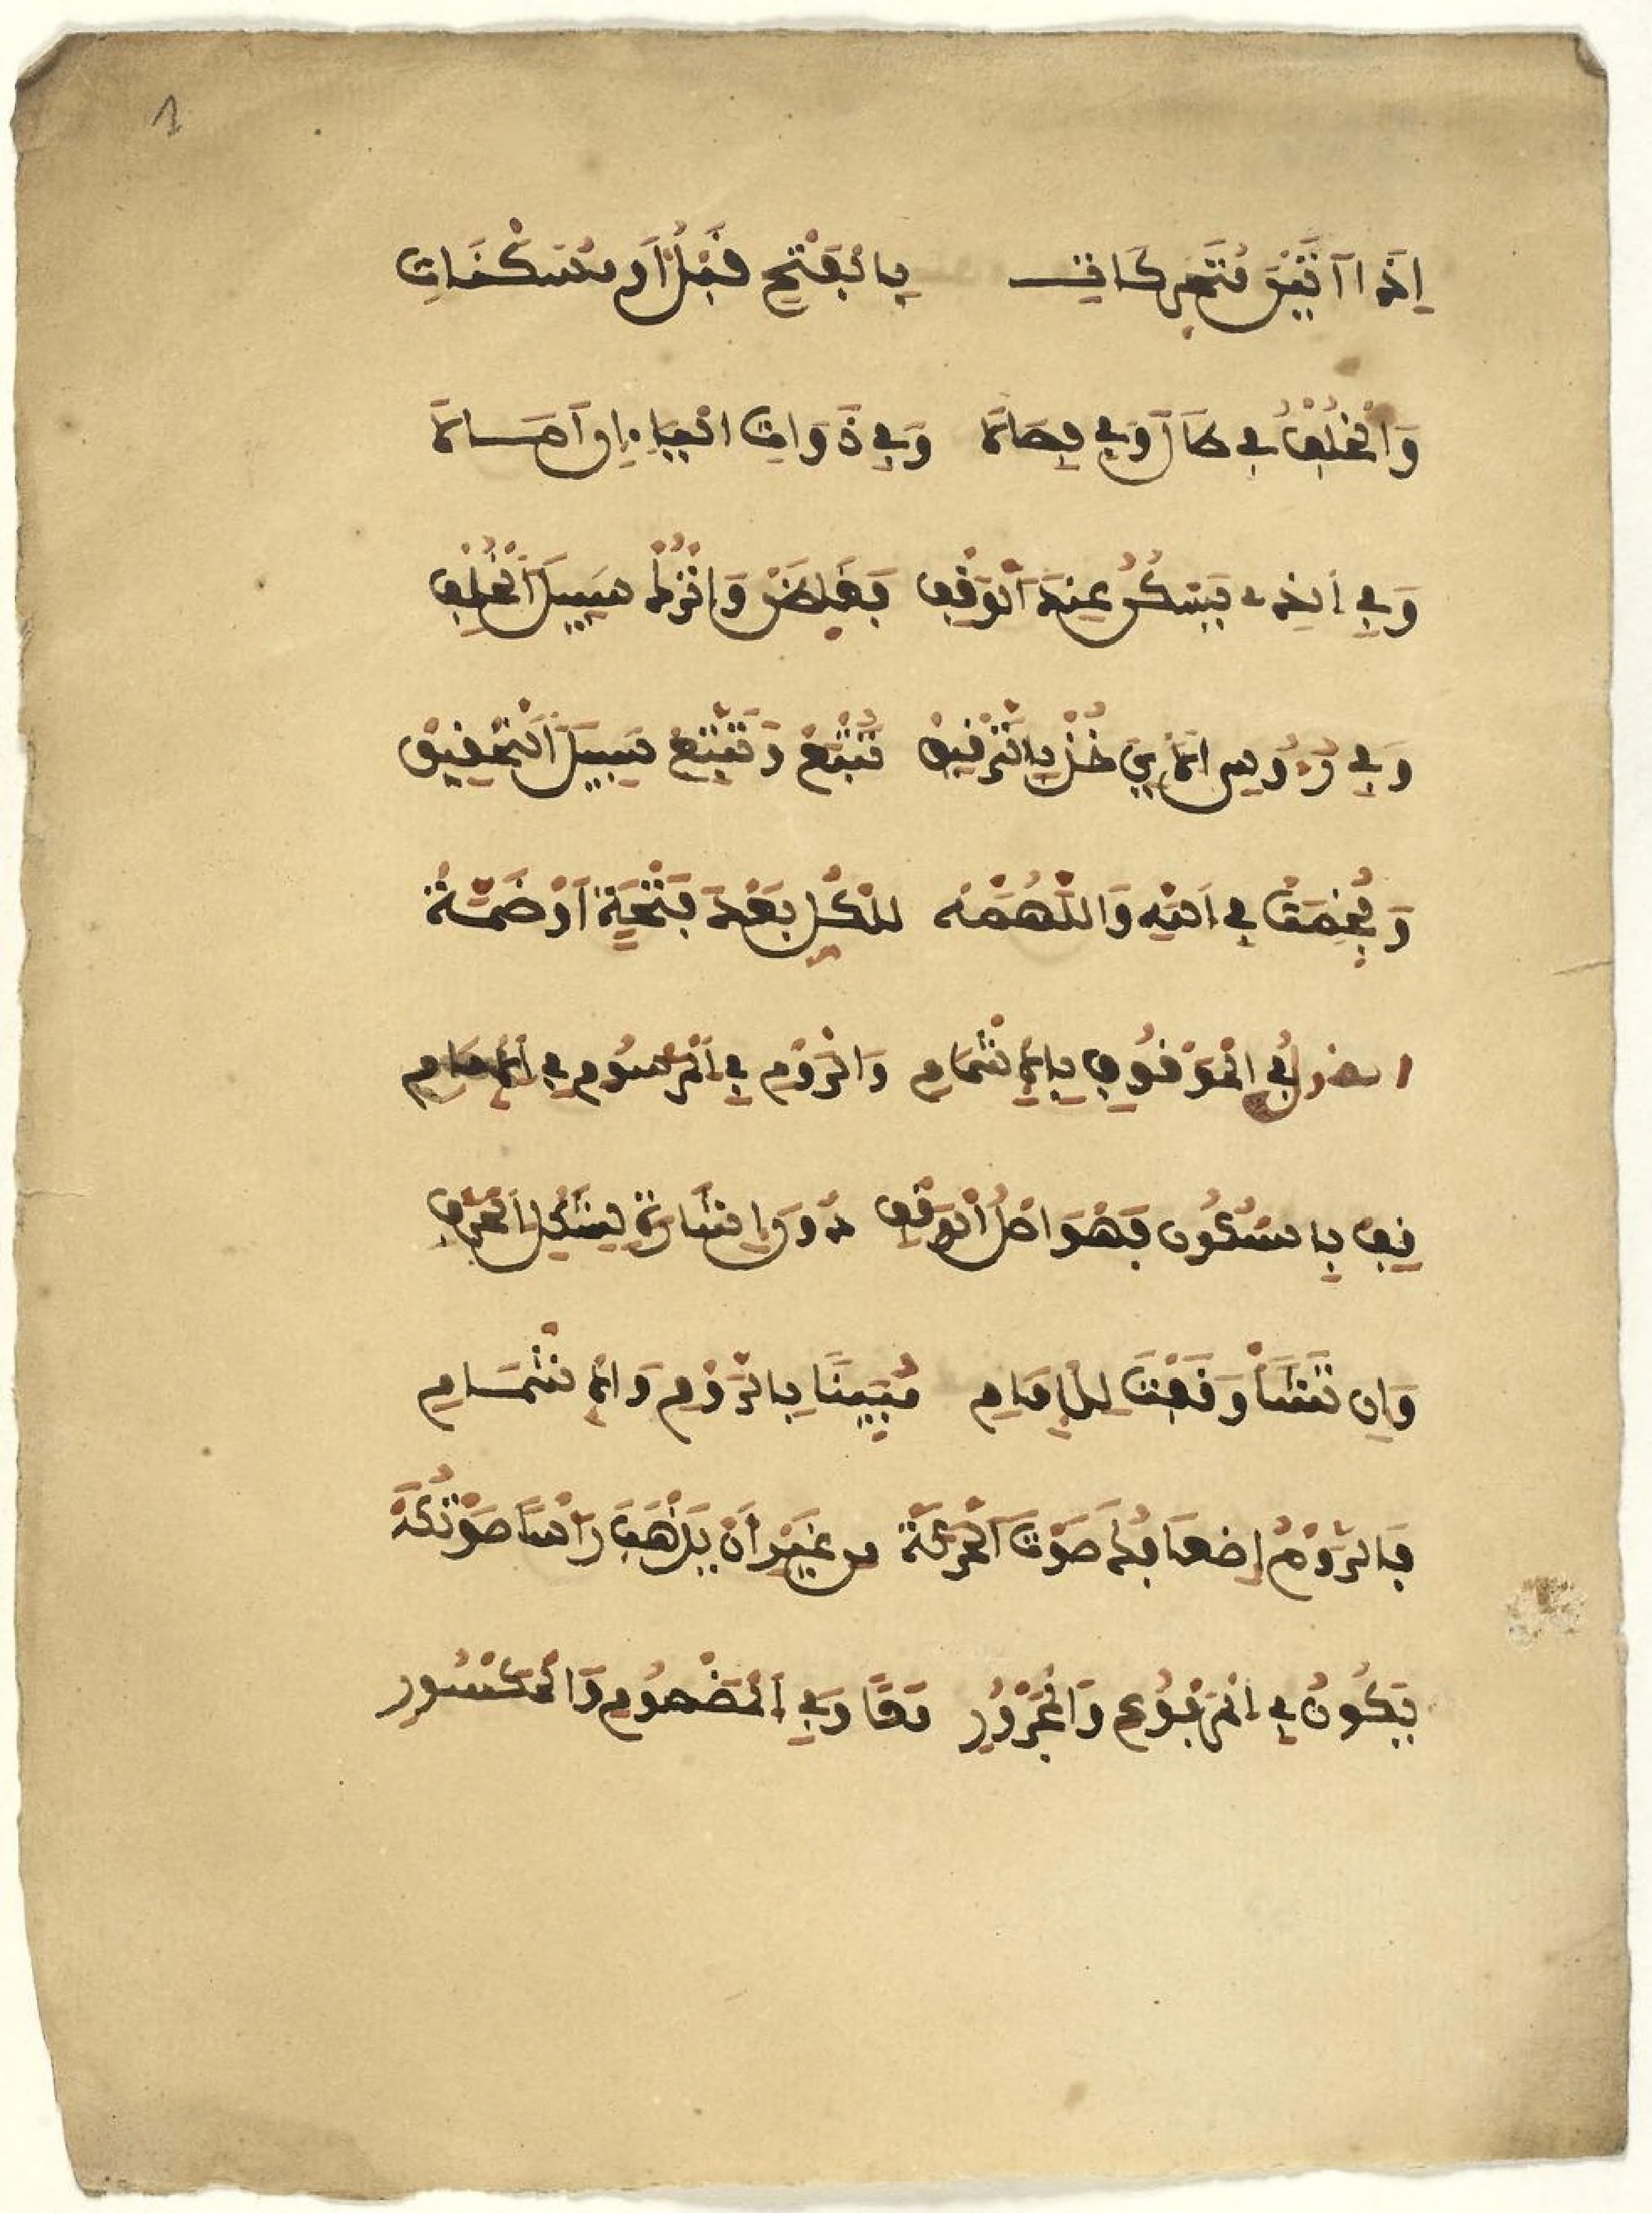 1
إِذَا أَتَيْنَ مُتَحَرِّكَاتِ بِالْفَتْحِ قَبْلُ أَوْ مُسَكَّنَاتِ
وَالْخُلْفُ فِي طَالَ وَفِي فِصَالَا وَفِي ذَوَاتِ الْيَاءِ إِن اَمَالَا
وَفِي الذِي يَسْكُنُ عِنْدَ الْوَقْفِ فَغَلِّظَنْ وَاتْرُكْ سَبِيلَ الْخُلْفِ
وَفِي رُءُوسِ الْآيِ خُذْ بِالتَّرْقِيقْ تُتْبَعْ وَتَتَّبِعْ سَبِيلَ التَّحْقِيقْ
وَفُخِّمَتْ فِي اللهِ وَاللَّهُمَّهْ لِلْكُلِّ بَعْدَ فَتْحَةٍ أَوْ ضَمَّهْ
القول فِي الْوُقُوفِ بِالْإِشْمَامِ وَالرَّوْمِ فِي الْمَرْسُومِ فِي الْإِمَامِ
قِفْ بِالسُّكُونِ فَهْوَ أَصْلُ الْوَقْفِ دُونَ إِشَارَةٍ لِشَكْلِ الْحَرْفِ
وَإِنْ تَشَأْ وَقَفْتَ لِلْإِمَامِ مُبَيِّنًا بِالرَّوْمِ وَالْإِشْمَامِ
فَالرَّوْمُ إِضْعَافُكَ صَوْتَ الْحَرَكَهْ مِنْ غَيْرِ أَنْ يَذْهَبَ رَأْسًا صَوْتُكَهْ
فَيَكُونُ فِي الْمَرْفُوعِ وَالْمَجْرُورِ مَعًا وَفِي الْمَضْمُومِ وَالْمَكْسُورِ